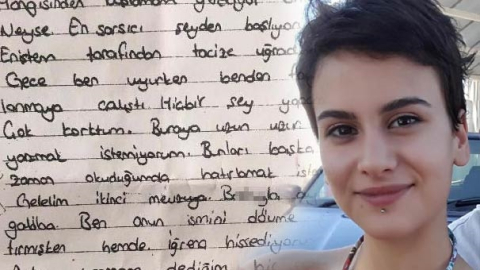 Hangisinden başlasam
Neyse En sarsıcı şeyden başlıyor
Eniştem tarafından tacize uğrad
Gece ben uyurken benden fa
lanmaya çalıştı. Hiçbir şey ya
Çok korktum. Buraya uzun uzun
yazmak istemiyorum. Bunları başka
zaman okuduğumda hatırlamak iste
Gelelim ikinci mevzuya. B
galiba Ben onun ismini dövme
tirmişten hemde. İğrenç hissediyor
dediğim